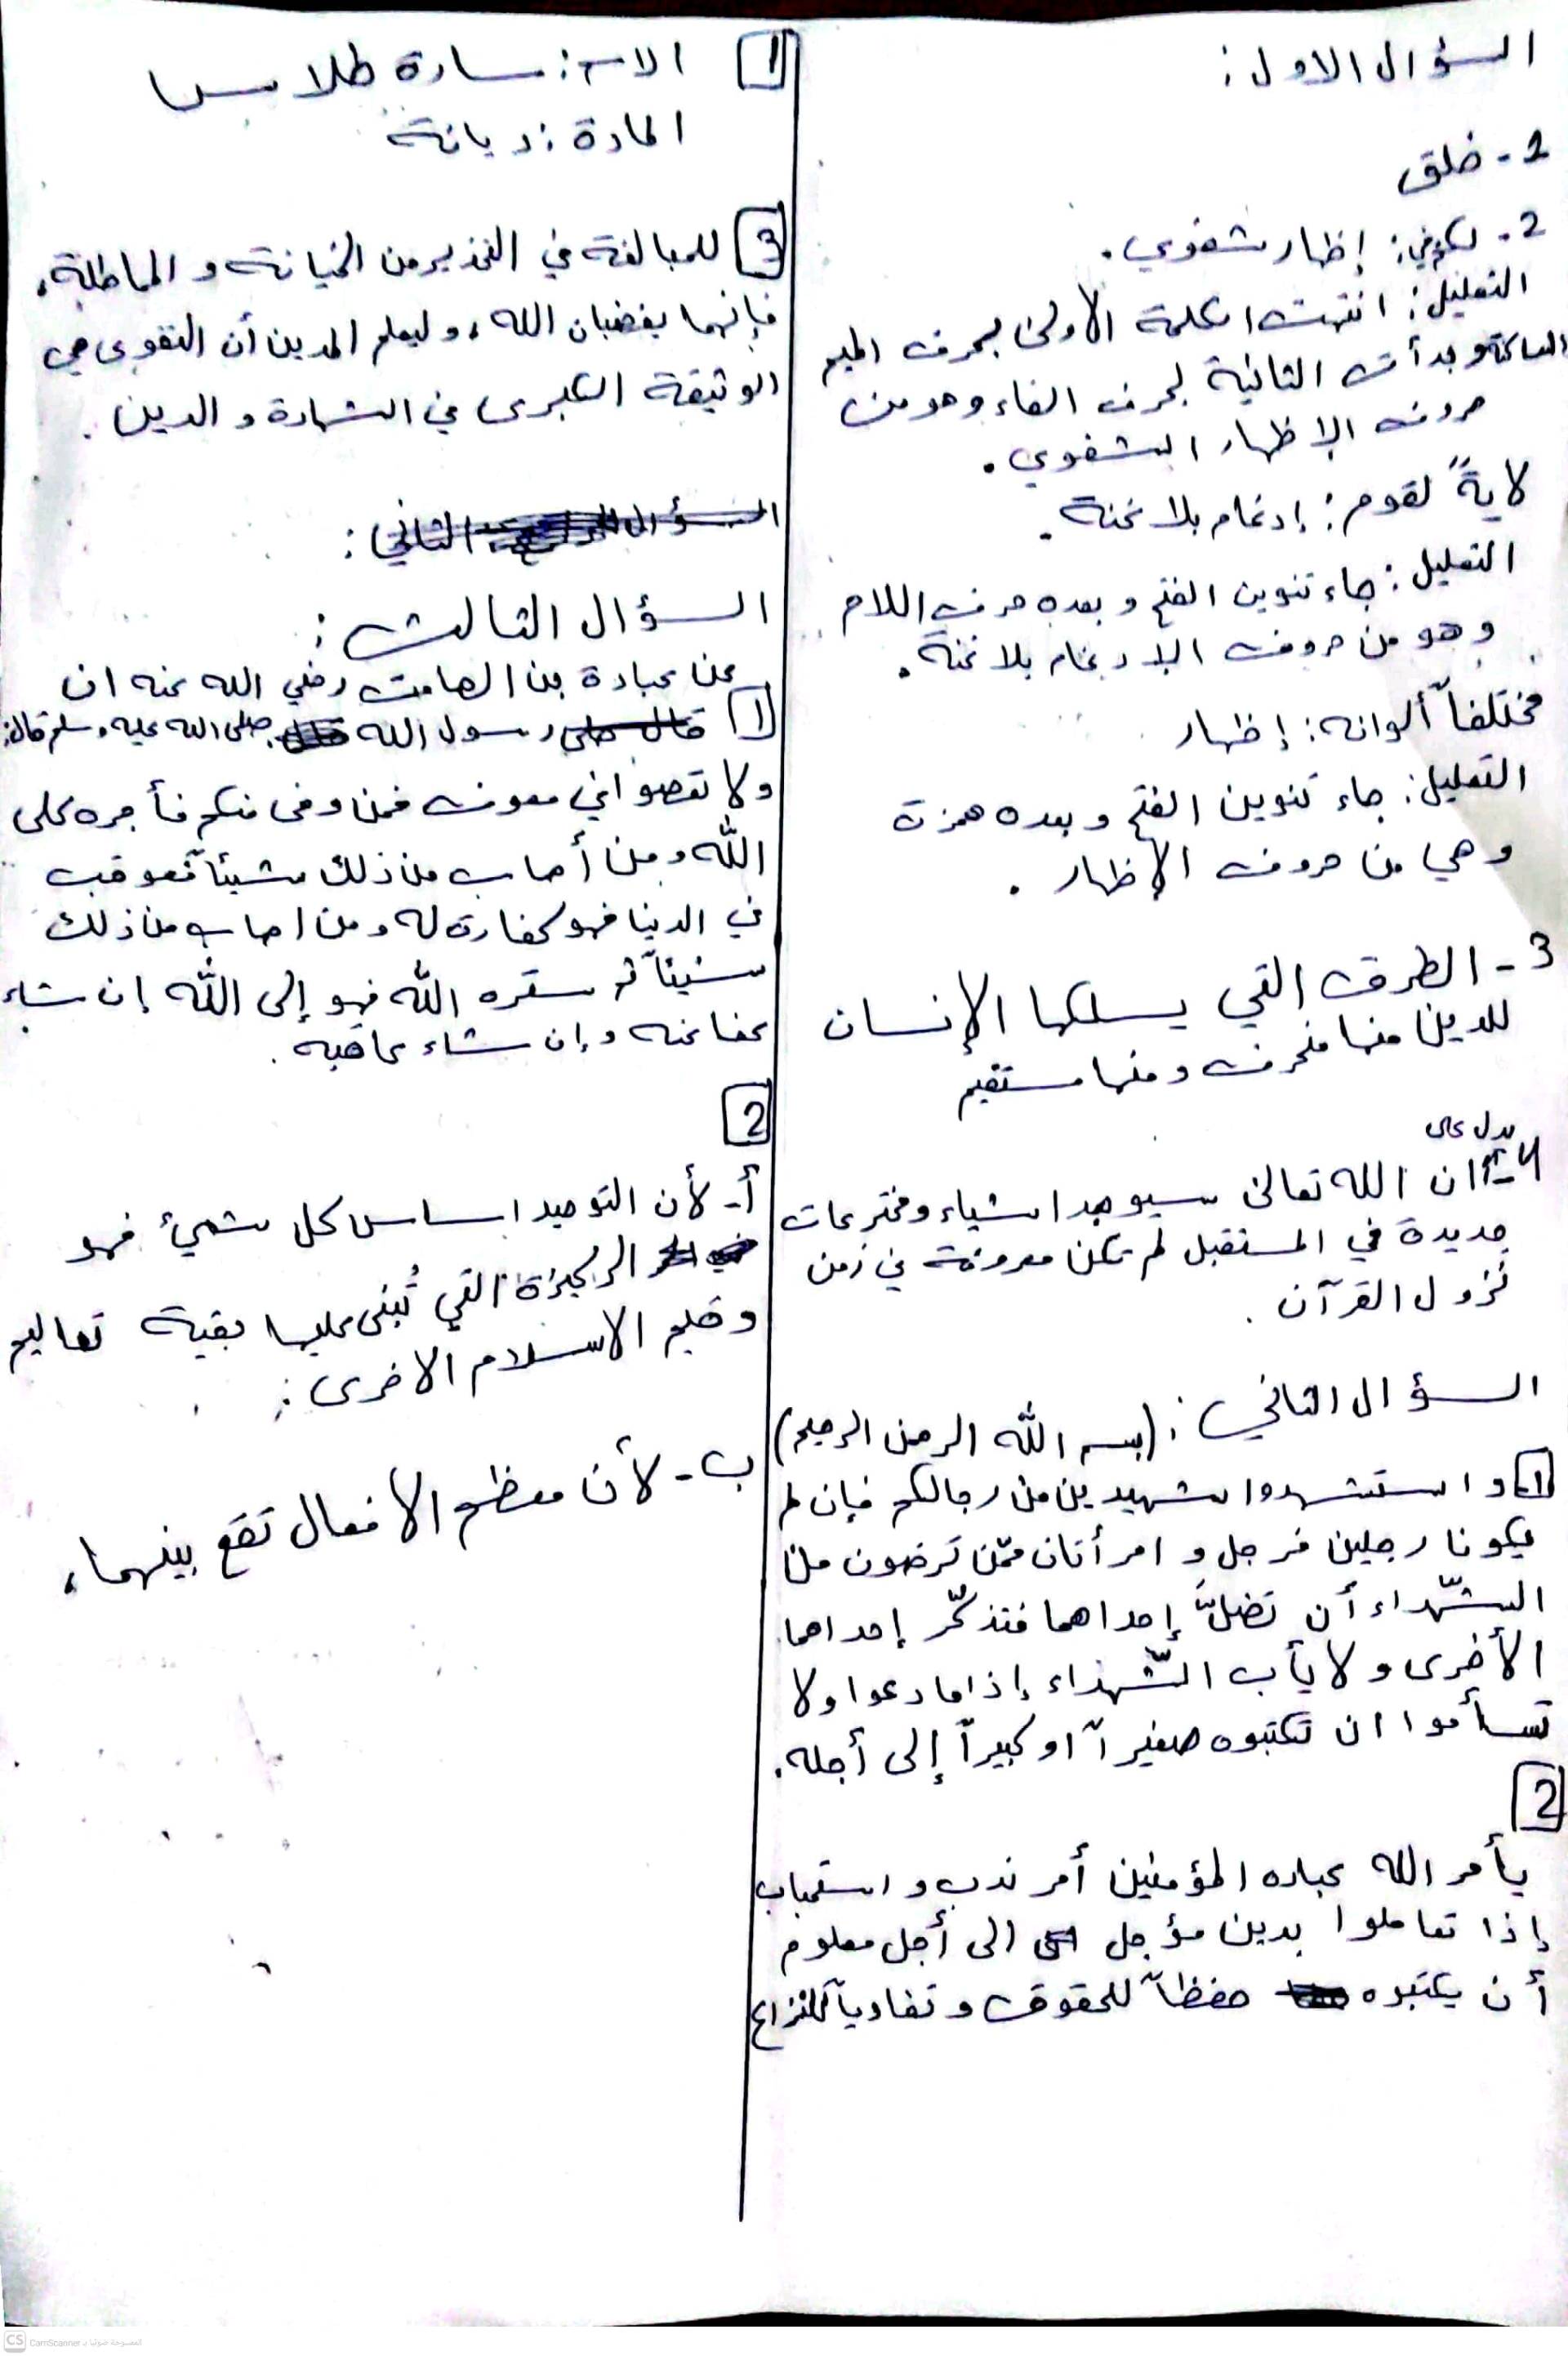 السؤال الاول:
1- خلق
2- لكم في: إظهار شفوي.
التعليل: انتهت الكلمة الأولى بحرف الميم
الساكنة وبدأت الثانية بحرف الفاء وهو من
حروف الإظهار الشفوي.
لآيةً لقوم: إدغام بلا غنة.
التعليل: جاء تنوين الفتح و بعده حرف اللام
و هو من حروف الإدغام بلا غنة.
مختلفاً ألوانه: إظهار
التعليل: جاء تنوين الفتح و بعده همزة
و هي من حروف الإظهار.
3- الطرق التي يسلكها الإنسان
للدين منها منحرف و منها مستقيم
يدل على
4- ان الله تعالى سيوجد اشياء ومخترعات
جديدة في المستقبل لم تكن معروفة في زمن
نزول القرآن.
السؤال الثاني: (بسم الله الرحمن الرحيم)
1- و استشهدوا شهيدين من رجالكم فإن لم
يكونا رجلين فرجل و امرأتان ممّن ترضون من
الشّهداء أن تضلَّ إحداهما فتذكّر إحداهما
الأخرى و لا يأب الشّهداء إذا ما دعوا ولا
تسأموا ان تكتبوه صغيراً او كبيراً إلى أجله.
2
يأمر الله عباده المؤمنين أمر ندب و استحباب
إذا تعاملوا بدين مؤجل الى أجل معلوم
أن يكتبوه حفظاً للحقوق و تفادياً للنزاع
1 الاسم: سارة طلاس
المادة: ديانة
3 للمبالغة في التحذير من الخيانة و المماطلة،
فإنهما يغضبان الله، و ليعلم المدين أن التقوى هي
الوثيقة الكبرى في الشهادة و الدين.
السؤال الثاني:
السؤال الثالث:
عن عبادة بن الصامت رضي الله عنه ان
1 رسول الله صلى الله عليه و سلم قال:
ولا تعصوا في معروف فمن وفى منكم فأجره على
الله و من أصاب من ذلك شيئاً فعوقب
في الدنيا فهو كفارة له و من اصاب من ذلك
شيئاً ثم ستره الله فهو إلى الله إن شاء
عفا عنه و إن شاء عاقبه.
2
أ- لأن التوحيد اساس كل شيئ فهو
الركيزة التي تُبنى عليها بقية تعاليم
وقيم الاسلام الاخرى.
ب- لأن معظم الافعال تقع بينهما،
CS CamScanner الممسوحة ضوئيا بـ